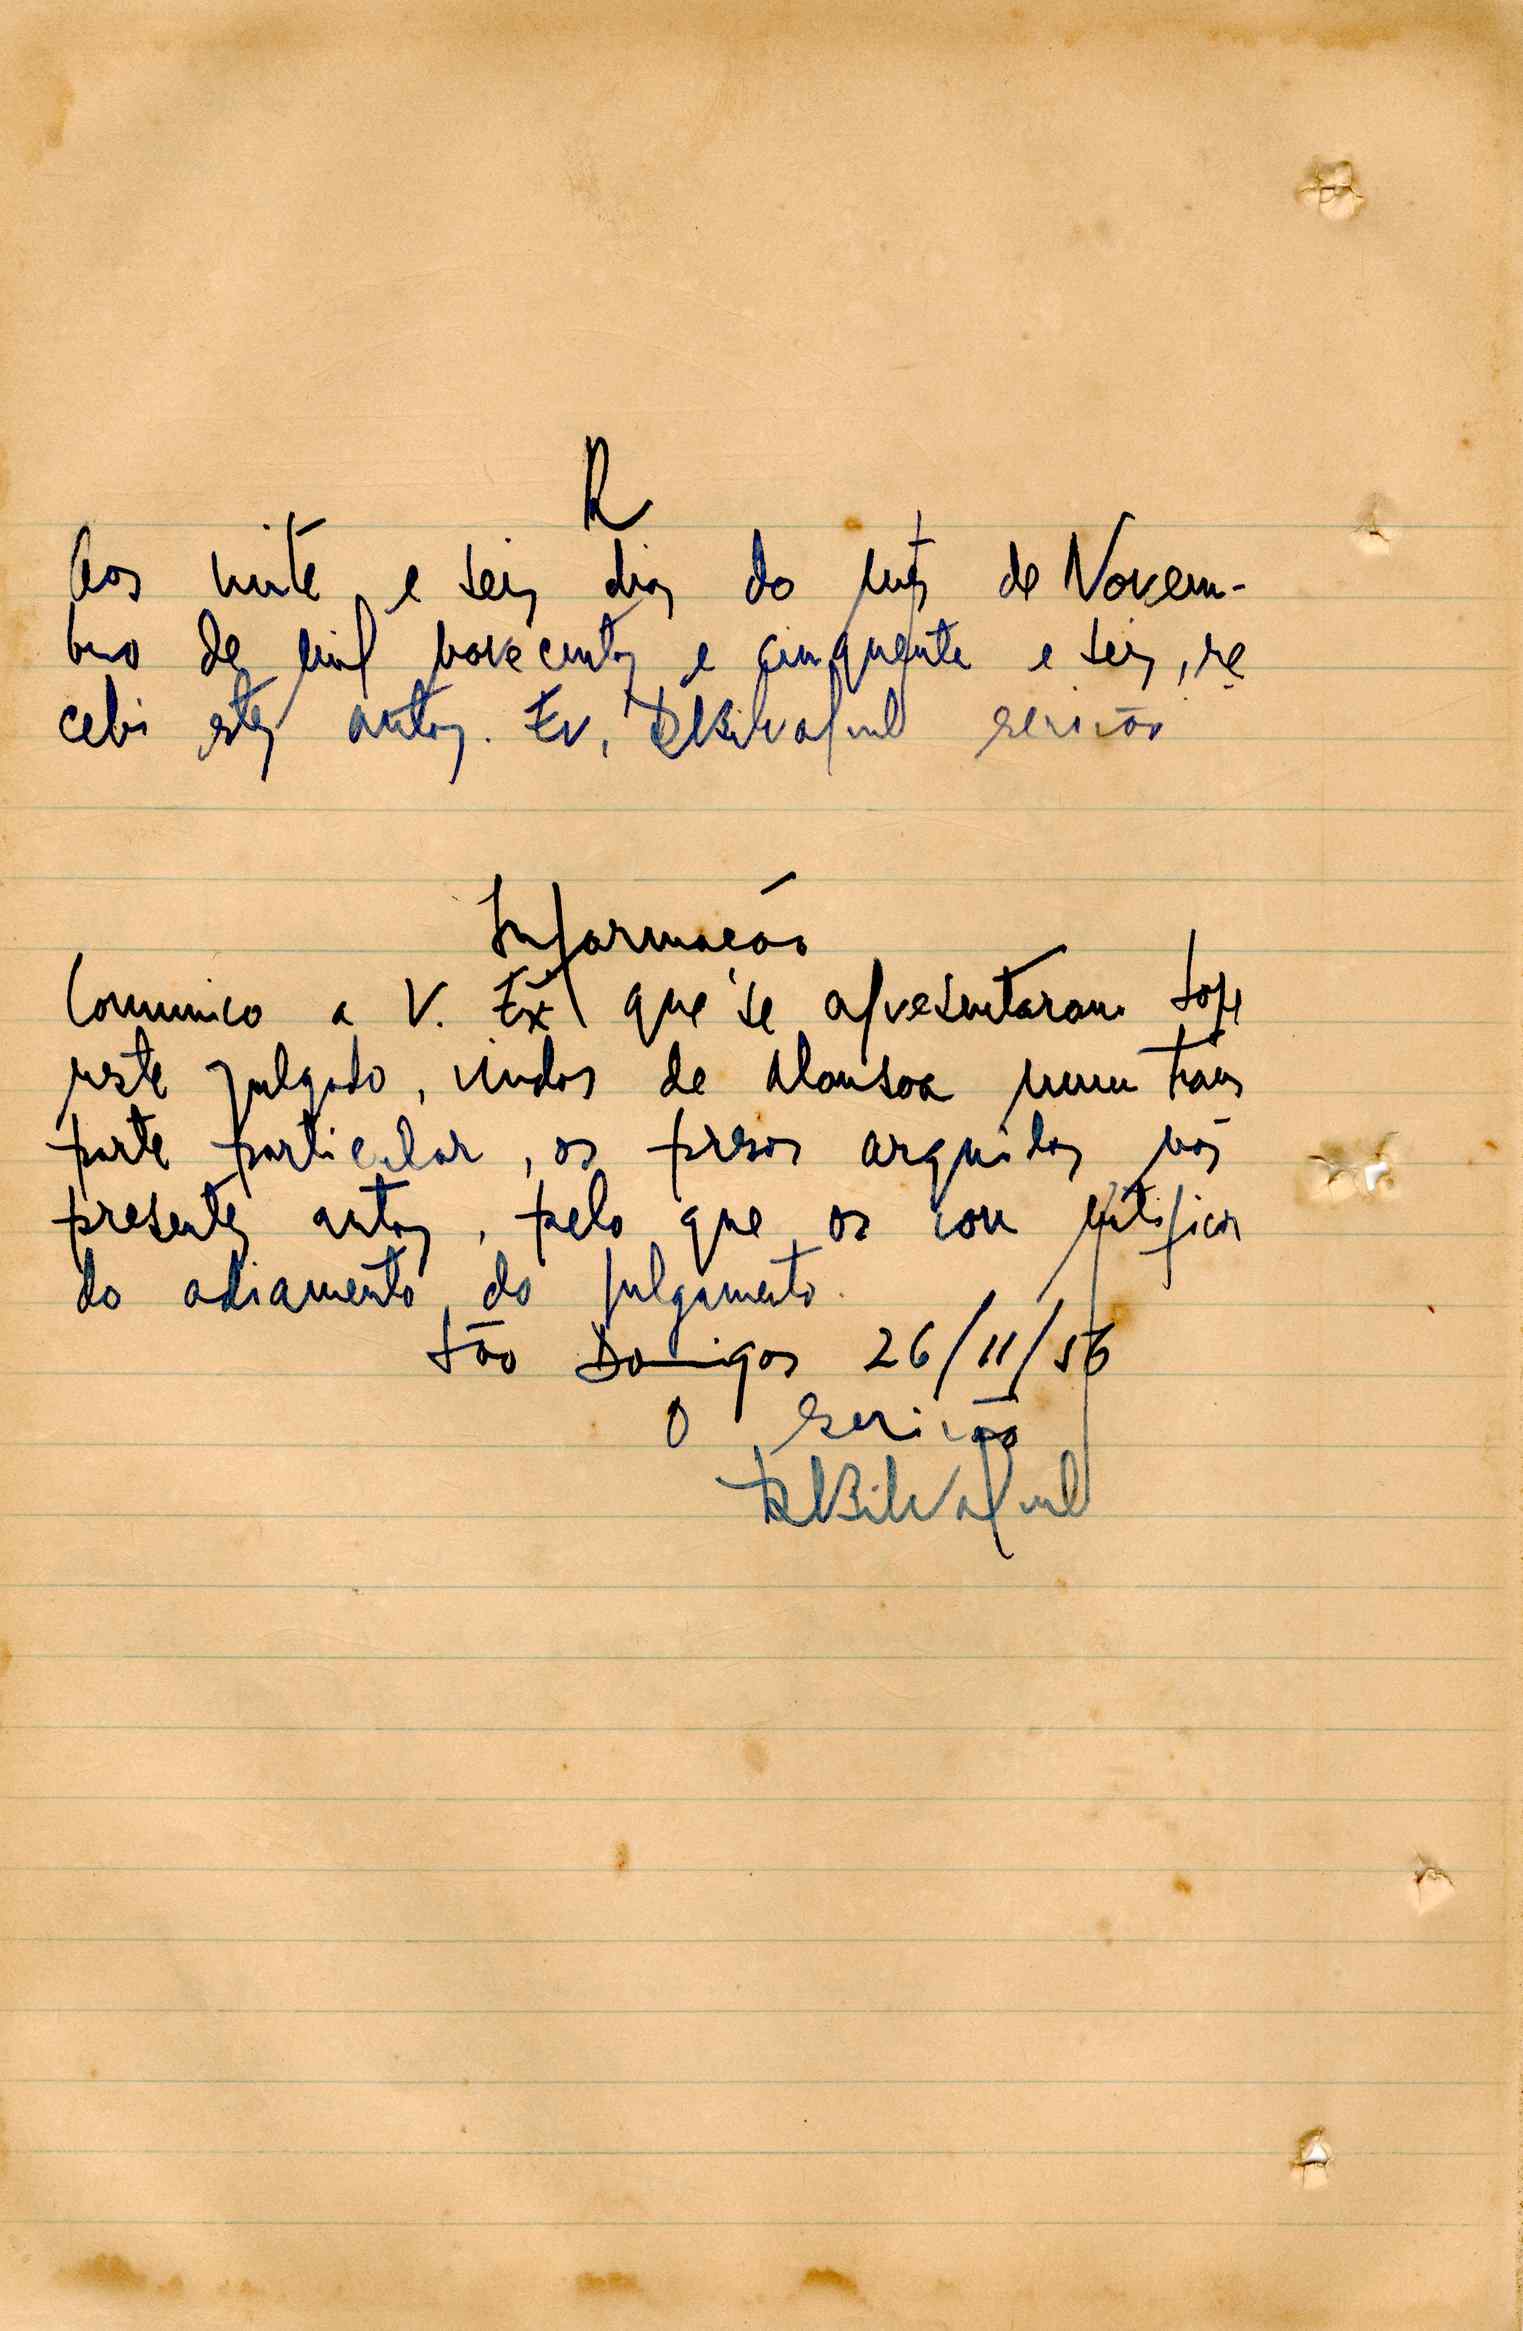 R
Aos vinte e seis dias do mês de Novem-
bro de mil novecentos e cinquenta e seis, re
cebi estes autos. Eu, escrivão
Informação
Comunico a V. Exª que se apresentaram hoje
neste julgado, vindos de Mansoa num trans
porte particular, os presos arguidos nos
presentes autos, pelo que os vou notificar
do adiamento do julgamento.
São Domingos 26/11/56
O escrivão